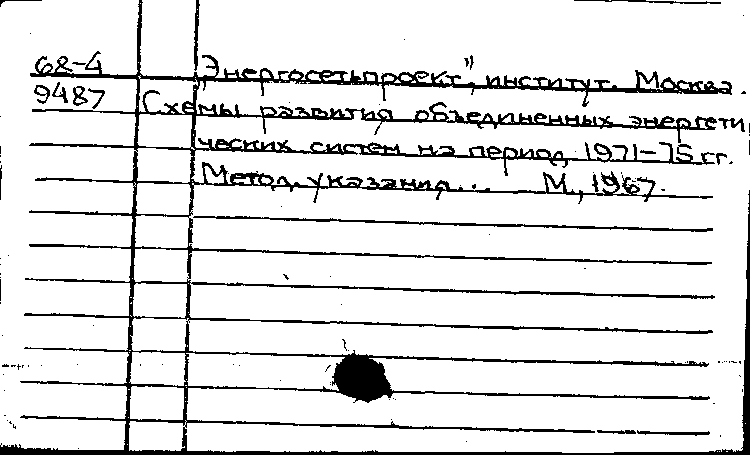 68-4 „Энергосетьпроект", институт. Москва.
9487 Схемы развития объединенных энергети
ческих систем на период 1971-75 гг.
Метод. указания... М., 1967.